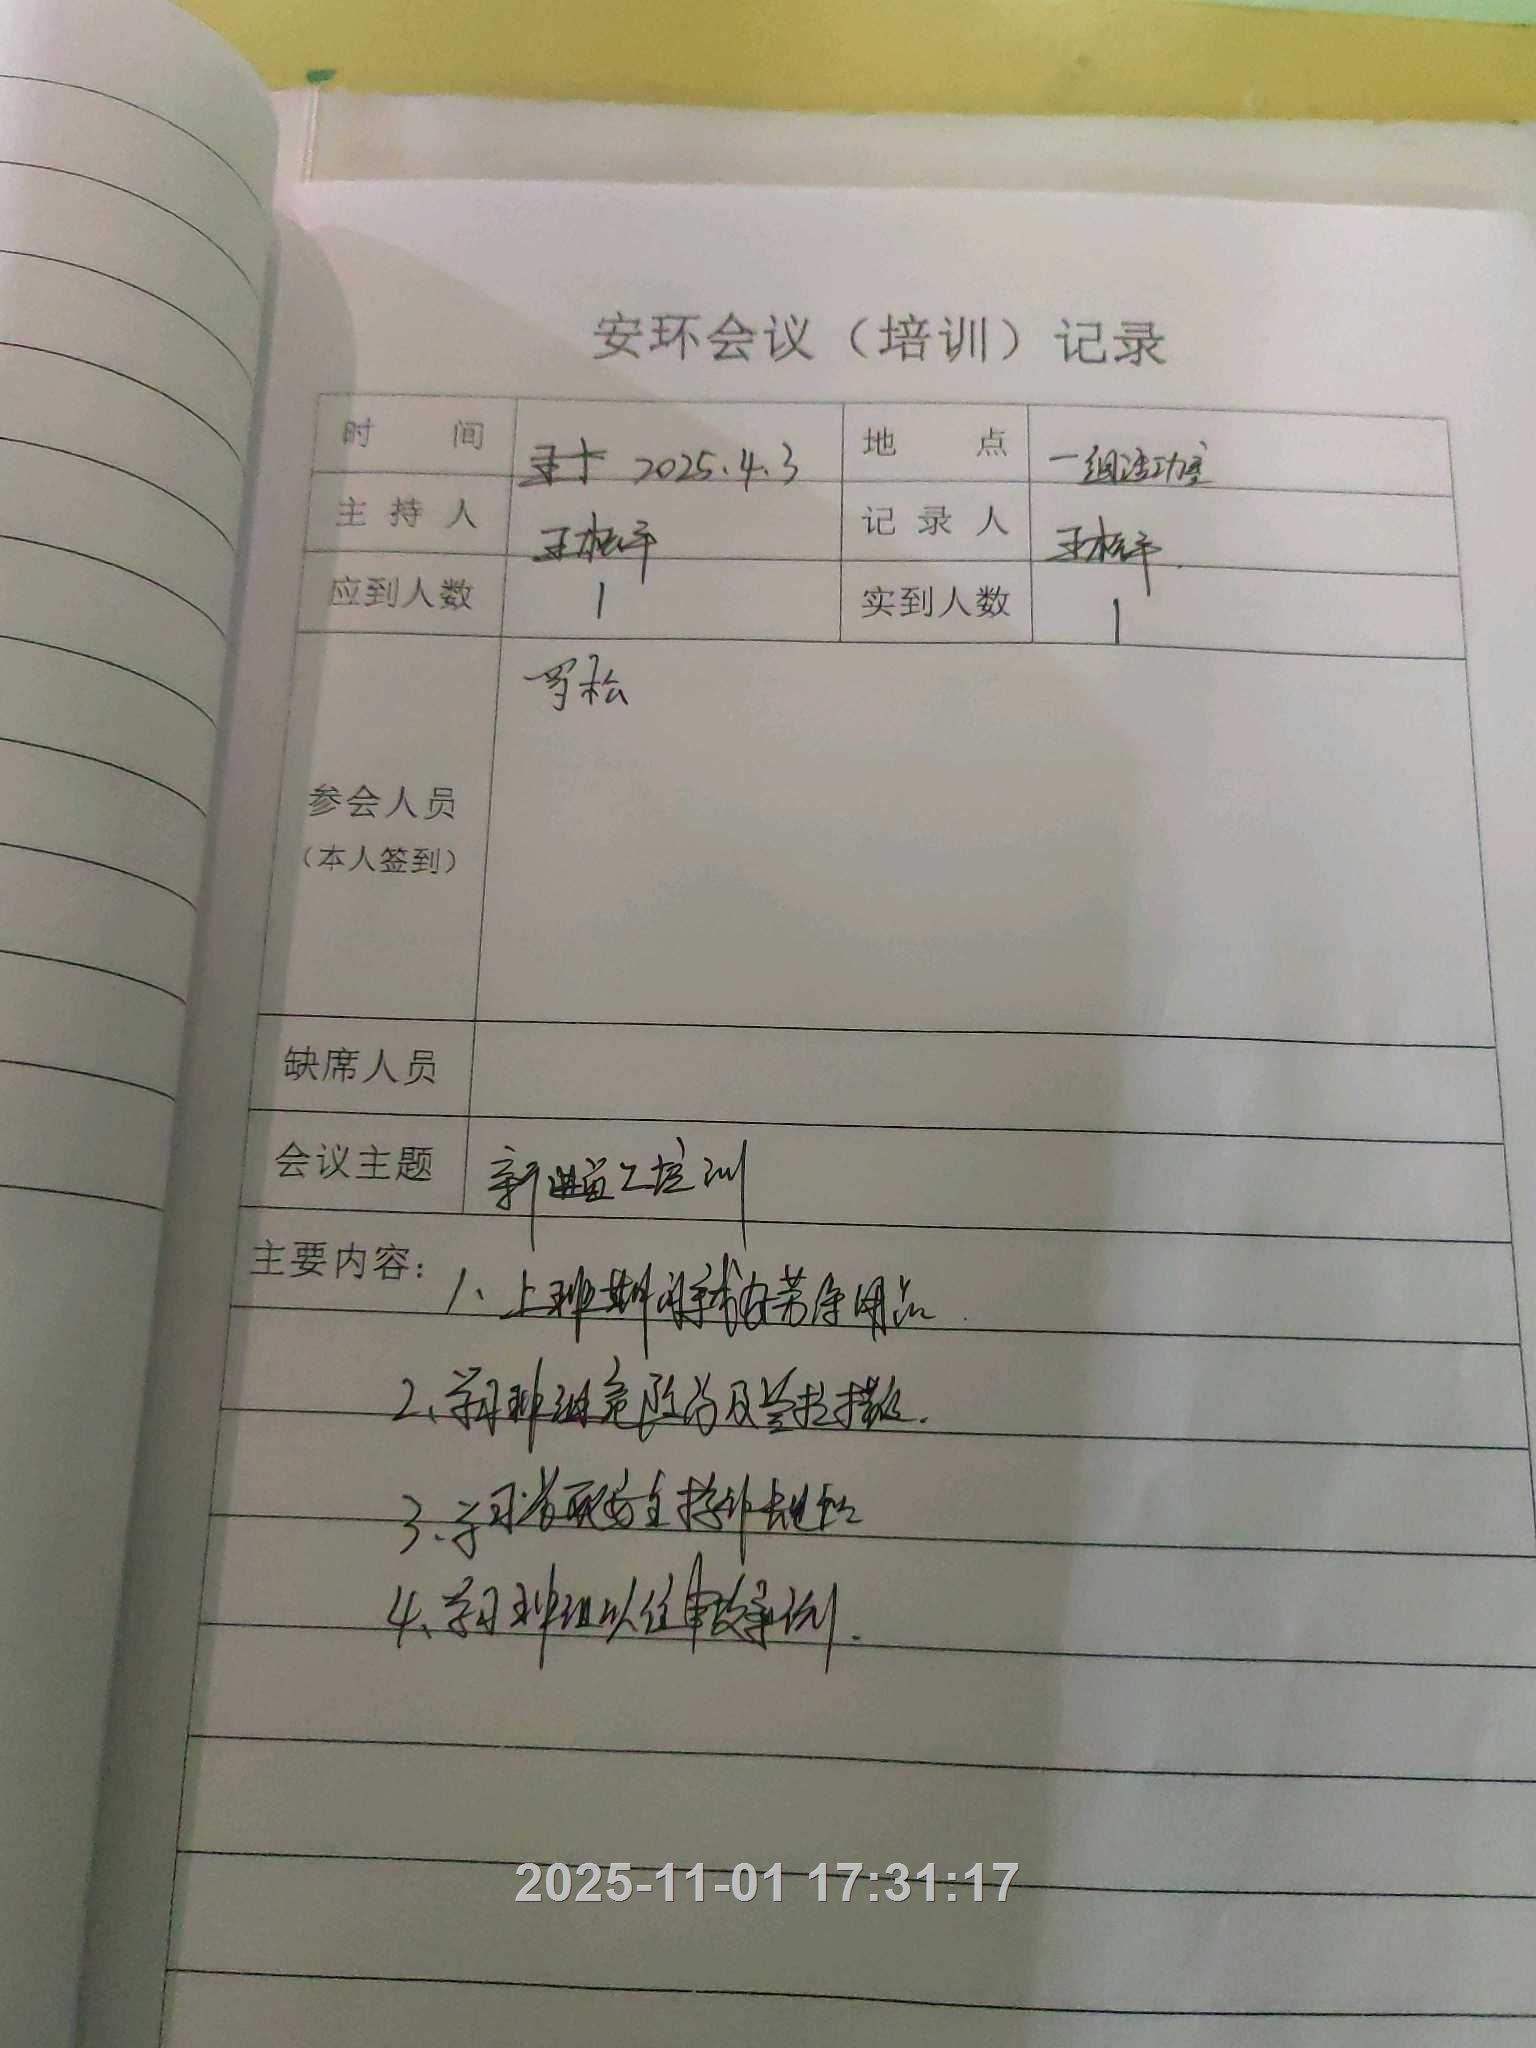 安环会议（培训）记录
时 间 2025.4.3 地 点 一组活动室
主持人 王松平 记录人 王松平.
应到人数 1 实到人数 1
罗松
参会人员
（本人签到）
缺席人员
会议主题 新进员工培训
主要内容： 1、上班期间穿戴好劳保用品.
2、学习班组危险源及管控措施.
3、学习岗职安全操作规程
4、学习班组以往事故案例.
2025-11-01 17:31:17